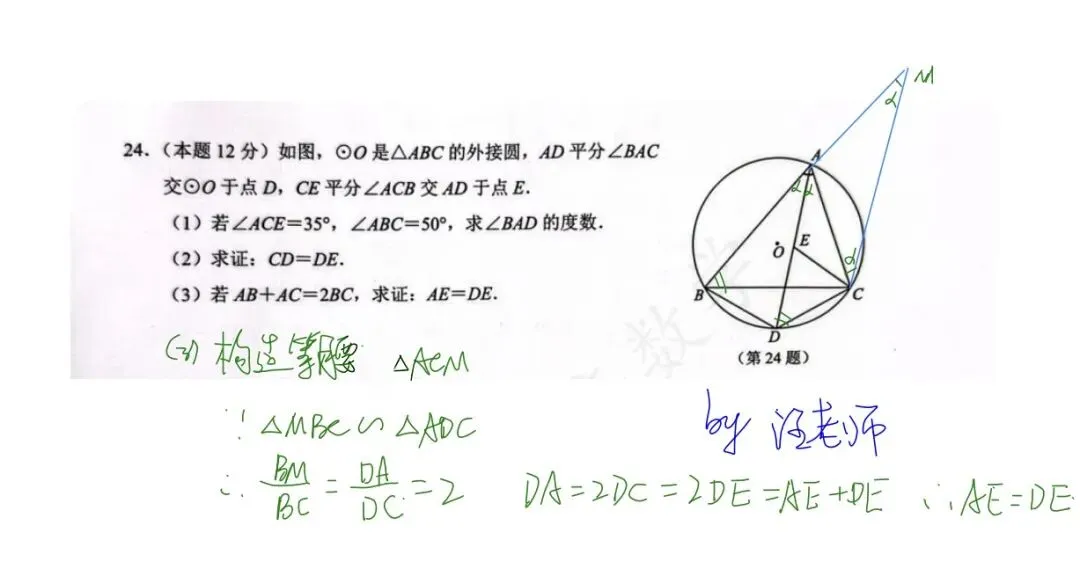 24.（本题12分）如图，⊙O是△ABC的外接圆，AD平分∠BAC
交⊙O于点D，CE平分∠ACB交AD于点E.
（1）若∠ACE=35°，∠ABC=50°，求∠BAD的度数.
（2）求证：CD=DE.
（3）若AB+AC=2BC，求证：AE=DE.
M
α
A
α α
E
O
α
B
C
D
（第24题）
数学
(3) 构造等腰 △ACM
∵ △MBC∽△ADC
by 汪老师
∴ BM/BC = DA/DC = 2 DA=2DC=2DE=AE+DE ∴AE=DE